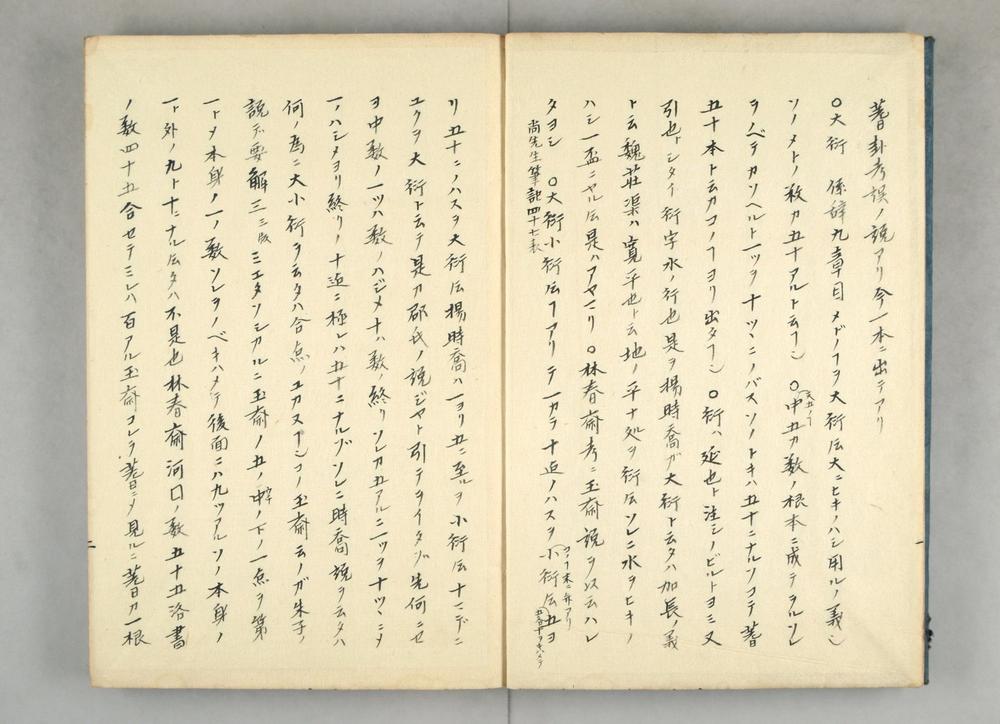 蓍卦考誤ノ説アリ今一本ニ出テアリ
〇大衍 係辞九章目メドノヿヲ大衍伝大ニヒキノハシ用ルノ義也
ソノメトノ数カ五十アルト云ヿ也 〇中五カ数ノ根本ニ成テヲルソレ
ヲノベテカソヘルト一ツヲ十ツヽニノバスソノトキハ五十ニナルソコテ蓍
五十本ト云カコノヿヨリ出タヿ也 〇衍ハ延也ト注シノビルトヨミ又
引也トシタイ衍字水ノ行也是ヲ楊時喬ガ大衍ト云タハ加長ノ義
ト云魏荘渠ハ寛平也ト云地ノ平ナ処ヲ衍伝ソレニ水ヲヒキノ
ハシ一盃ニヤル伝是ハアヤマリ 〇林春斎考ニ玉斎説ヲ以云ハレ
タヨシ 〇大衍小衍伝ヿアリテ一カラ十迄ノハスヲ小衍伝五ヨ
尚先生筆記四十七表
リ五十ニノハスヲ大衍伝楊時喬ハ一ヨリ五ニ至ルヲ小衍伝十マデニ
ユクヲ大衍ト云テ是カ邵氏ノ説ジヤト引テヲイタゾ先何ニセ
ヨ中数ノ一ツハ数ノハジメ十ハ数ノ終リソレカ五アルニ一ツヲ十ツヽニメ
一ノハシメヨリ終リノ十迄ニ極レハ五十ニナルゾソレニ時喬説ヲ云タハ
何ノ為ニ大小衍ヲ云タハ合点ノユカヌヿ也コノ玉斎云ノガ朱子ノ
説不要解三三版ミエタシカルニ玉斎ノ五ノ中ノ下ノ一点ヲ第
一トメ本身ノ一ノ数ソレヲノベキハメテ後面ニハ九ツアルソノ本身ノ
一ト外ノ九ト十ニナル伝タハ不是也林春斎河口ノ数五十五洛書
ノ数四十五合セテミレハ百アル玉斎コレヲ蓍ニメ見ルニ蓍カ一根